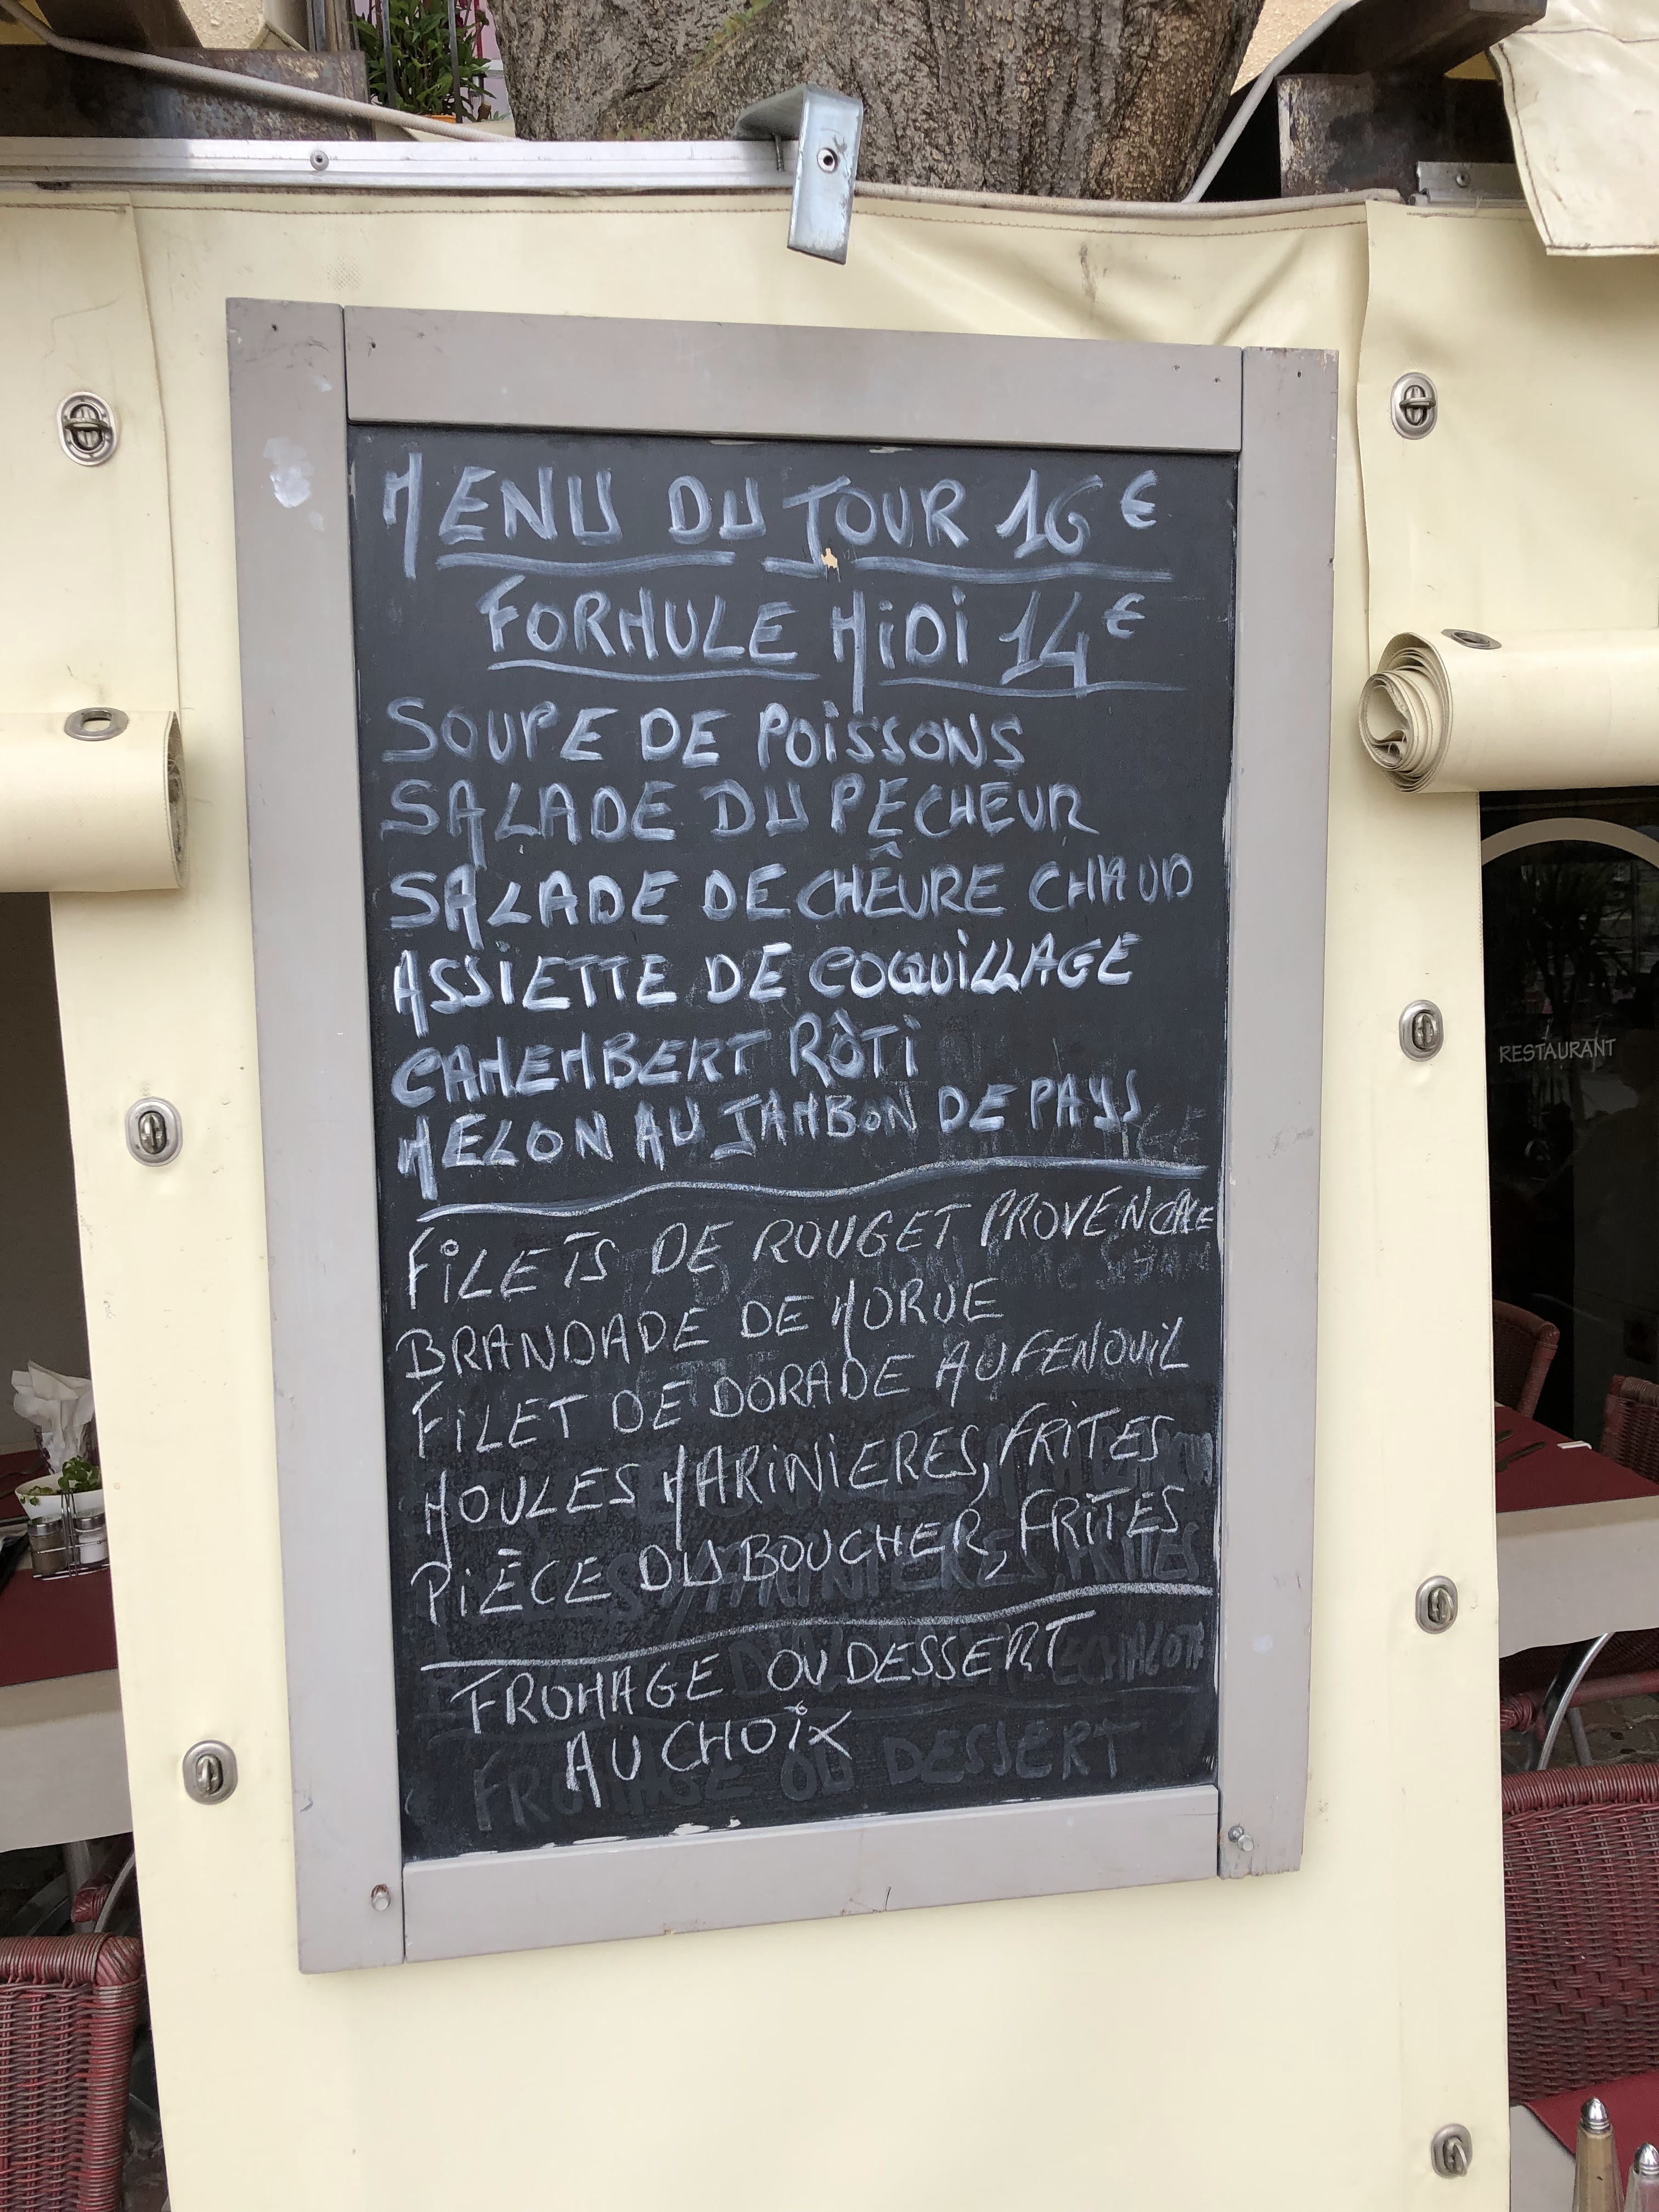 MENU DU JOUR 16€
FORMULE MIDI 14€
SOUPE DE POISSONS
SALADE DU PECHEUR
SALADE DE CHÊVRE CHAUD
ASSIETTE DE COQUILLAGE
CAMEMBERT RÔTI
MELON AU JAMBON DE PAYS
FILETS DE ROUGET PROVENCALE
BRANDADE DE MORUE
FILET DE DORADE AU FENOUIL
MOULES MARINIERES, FRITES
PIÈCE DU BOUCHER, FRITES
FROMAGE OU DESSERT
AU CHOIX
FROMAGE OU DESSERT
RESTAURANT